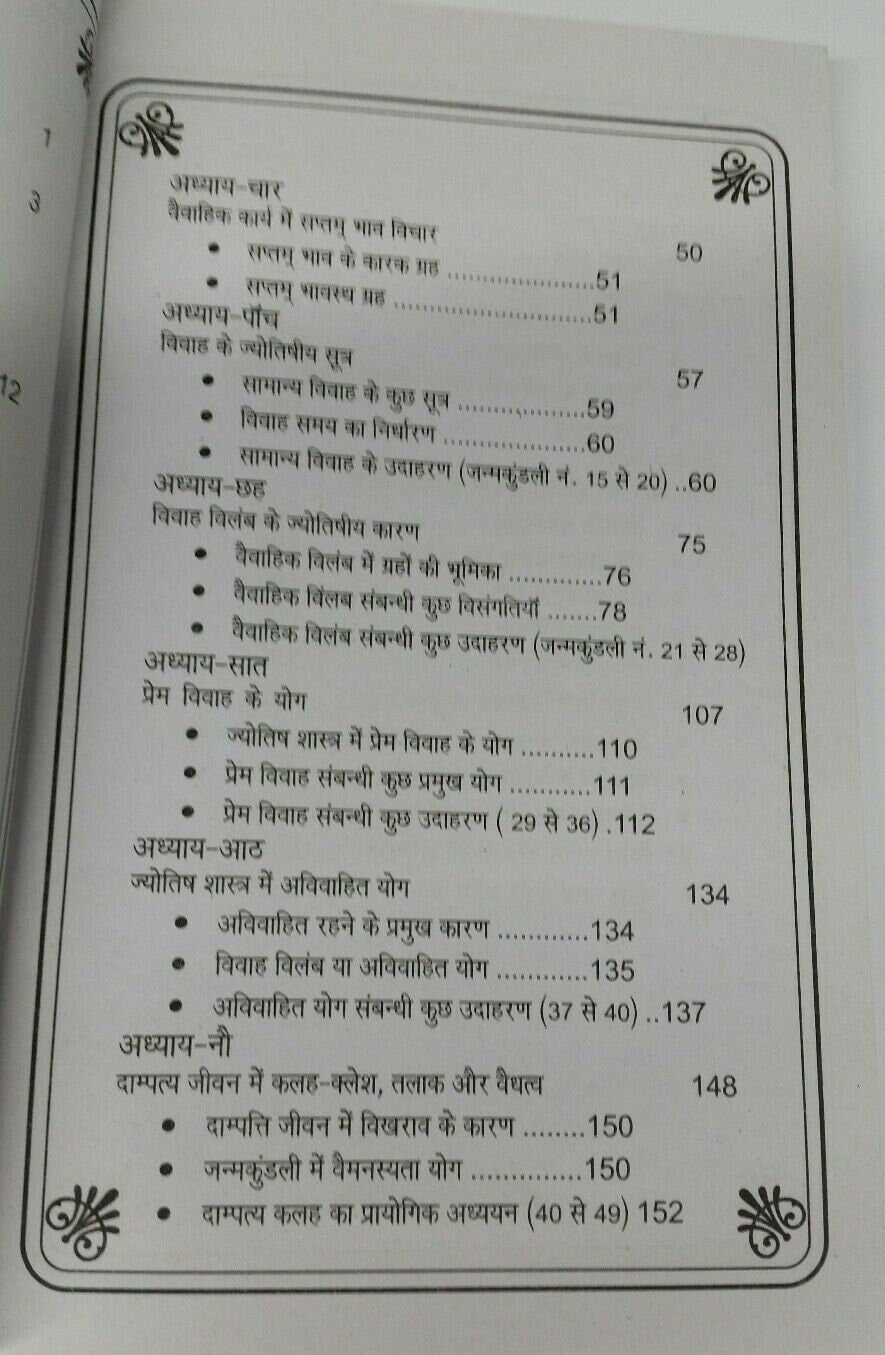 1
3
12
अध्याय-चार
वैवाहिक कार्य में सप्तम् भाव विचार 50
• सप्तम् भाव के कारक ग्रह ......................51
• सप्तम् भावस्थ ग्रह ..............................51
अध्याय-पाँच
विवाह के ज्योतिषीय सूत्र 57
• सामान्य विवाह के कुछ सूत्र ...................59
• विवाह समय का निर्धारण .....................60
• सामान्य विवाह के उदाहरण (जन्मकुंडली नं. 15 से 20) ..60
अध्याय-छह
विवाह विलंब के ज्योतिषीय कारण 75
• वैवाहिक विलंब में ग्रहों की भूमिका .............76
• वैवाहिक विंलब संबन्धी कुछ विसंगतियाँ .......78
• वैवाहिक विलंब संबन्धी कुछ उदाहरण (जन्मकुंडली नं. 21 से 28)
अध्याय-सात
प्रेम विवाह के योग 107
• ज्योतिष शास्त्र में प्रेम विवाह के योग ..........110
• प्रेम विवाह संबन्धी कुछ प्रमुख योग ...........111
• प्रेम विवाह संबन्धी कुछ उदाहरण ( 29 से 36) .112
अध्याय-आठ
ज्योतिष शास्त्र में अविवाहित योग 134
• अविवाहित रहने के प्रमुख कारण ............134
• विवाह विलंब या अविवाहित योग ............135
• अविवाहित योग संबन्धी कुछ उदाहरण (37 से 40) ..137
अध्याय-नौ
दाम्पत्य जीवन में कलह-क्लेश, तलाक और वैधत्व 148
• दाम्पत्ति जीवन में विखराव के कारण ........150
• जन्मकुंडली में वैमनस्यता योग ..............150
• दाम्पत्य कलह का प्रायोगिक अध्ययन (40 से 49) 152